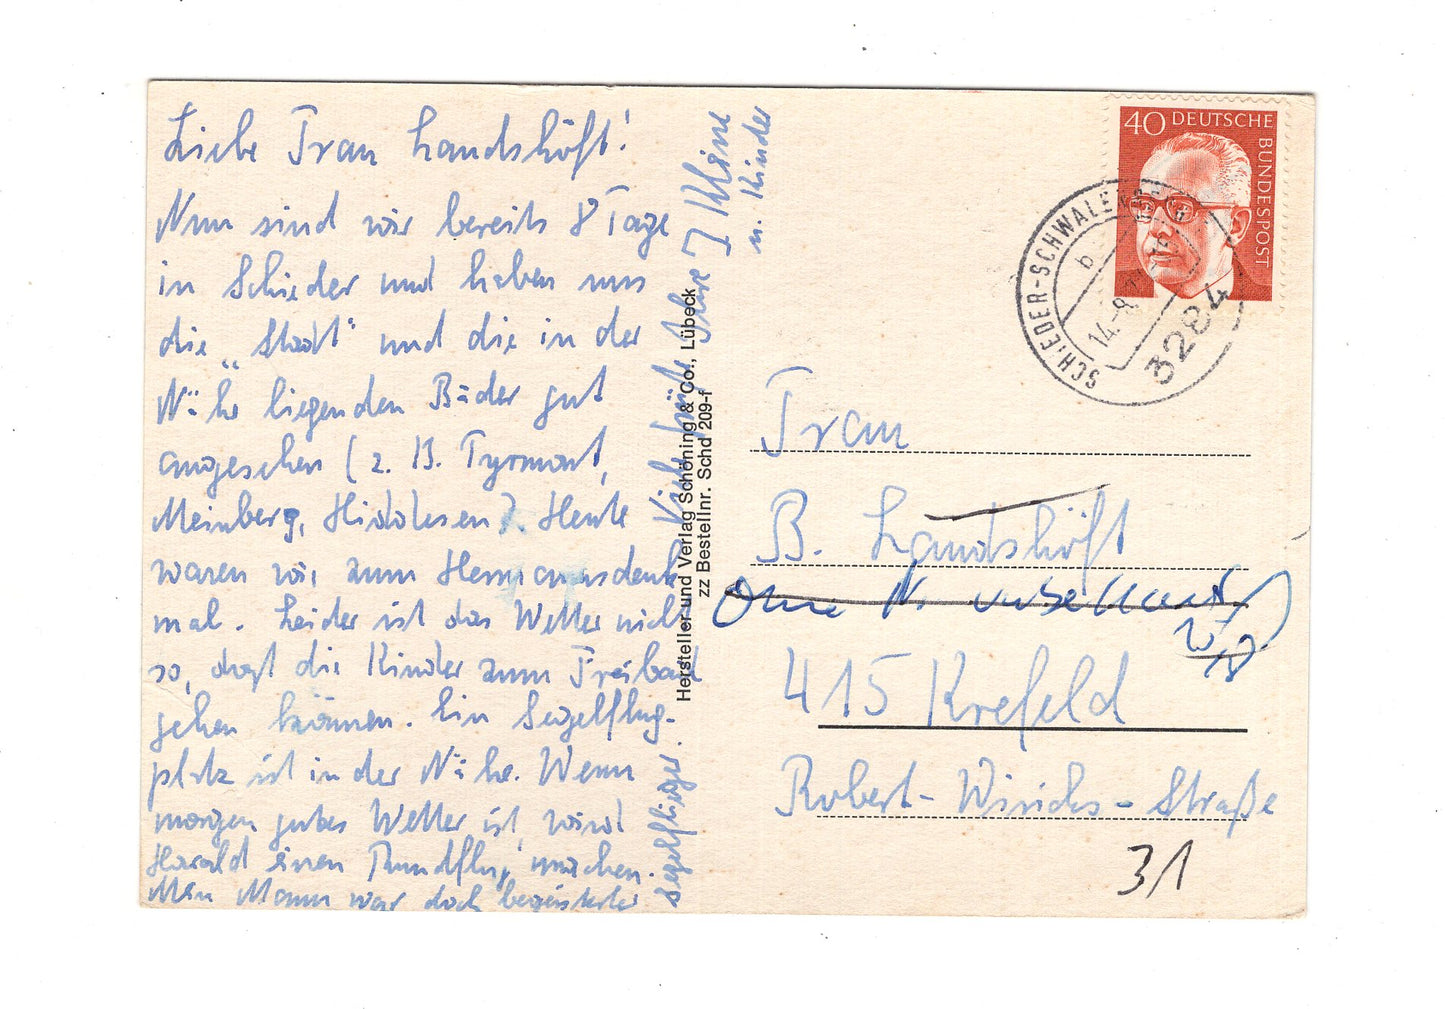 Liebe Frau Landshöft!
Nun sind wir bereits 8 Tage
in Schieder und haben uns
die „Stadt" und die in der
Nähe liegenden Bäder gut
angesehen (z. B. Pyrmont,
Meinberg, Hiddesen). Heute
waren wir zum Hermannsdenk-
mal. Leider ist das Wetter nicht
so, daß die Kinder zum Freibad
gehen können. Ein Segelflug-
platz ist in der Nähe. Wenn
morgen gutes Wetter ist, wird
Harald einen Rundflug machen.
Mein Mann war doch begeisterter
Segelflieger.
Viele Grüße Ihre I Kleine
u. Kinder
Hersteller und Verlag Schöning & Co., Lübeck
zz Bestellnr. Schd 209-f
40 DEUTSCHE
BUNDESPOST
SCHIEDER-SCHWALENBERG
b
14.-8.
3284
Frau
B. Landshöft
Ohne Nr unbekannt
415 Krefeld
Robert-Winichs-Straße
31